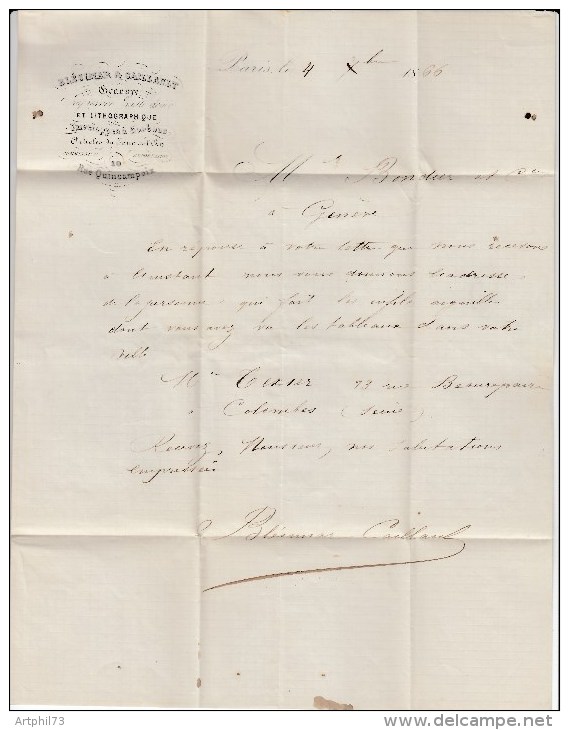 BLÉSIMAR & CAILLAUT
Graveur
ET LITHOGRAPHIQUE
Articles de
10
Rue Quincampoix
Paris, le 4 bre 1866
et Cie
à Genève
En réponse à votre lettre que nous recevons
à l'instant nous vous donnons l'adresse
de la personne qui fait les enfile aiguilles
dont vous avez vu les tableaux dans votre
ville
73 rue Beaurepaire
à Colombes (Seine)
Recevez, Messieurs, nos salutations
empressées
Blésimar Caillaut
Artphil73
www.delcampe.net